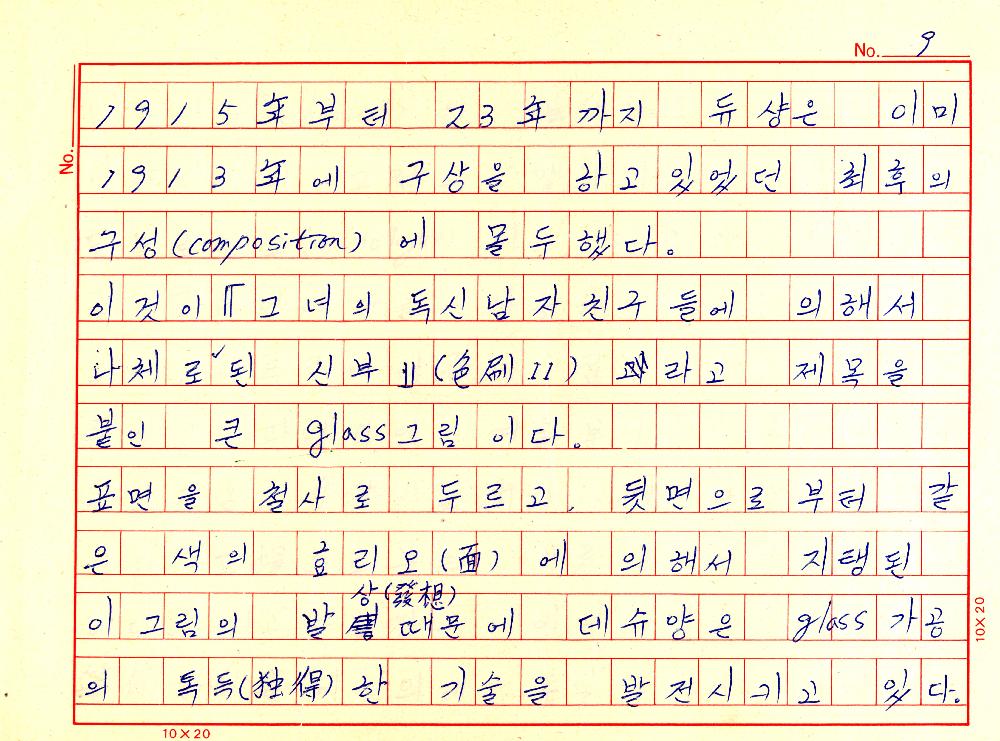 No. 9
No.
1915年부터 23年까지 듀샹은 이미
1913年에 구상을 하고 있었던 최후의
구성(composition)에 몰두했다。
이것이『그녀의 독신남자친구들에 의해서
나체로된 신부』(色刷11) 라고 제목을
붙인 큰 glass그림이다。
표면을 철사로 두르고, 뒷면으로부터 같
은 색의 효리오(面)에 의해서 지탱된
상(發想)
이그림의 발 때문에 데슈양은 glass가공
의 톡득(独得)한 기술을 발전시키고 있다。
10×20
10×20